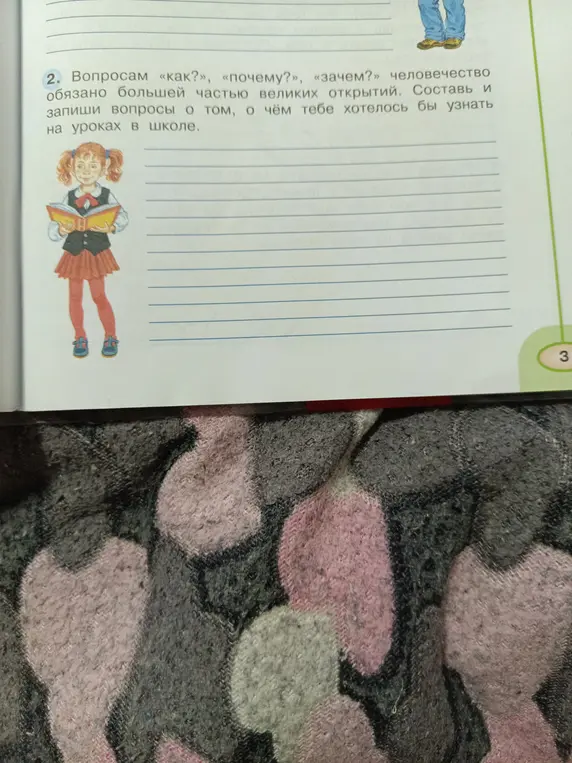 2. Вопросам «как?», «почему?», «зачем?» человечество
обязано большей частью великих открытий. Составь и
запиши вопросы о том, о чём тебе хотелось бы узнать
на уроках в школе.
3